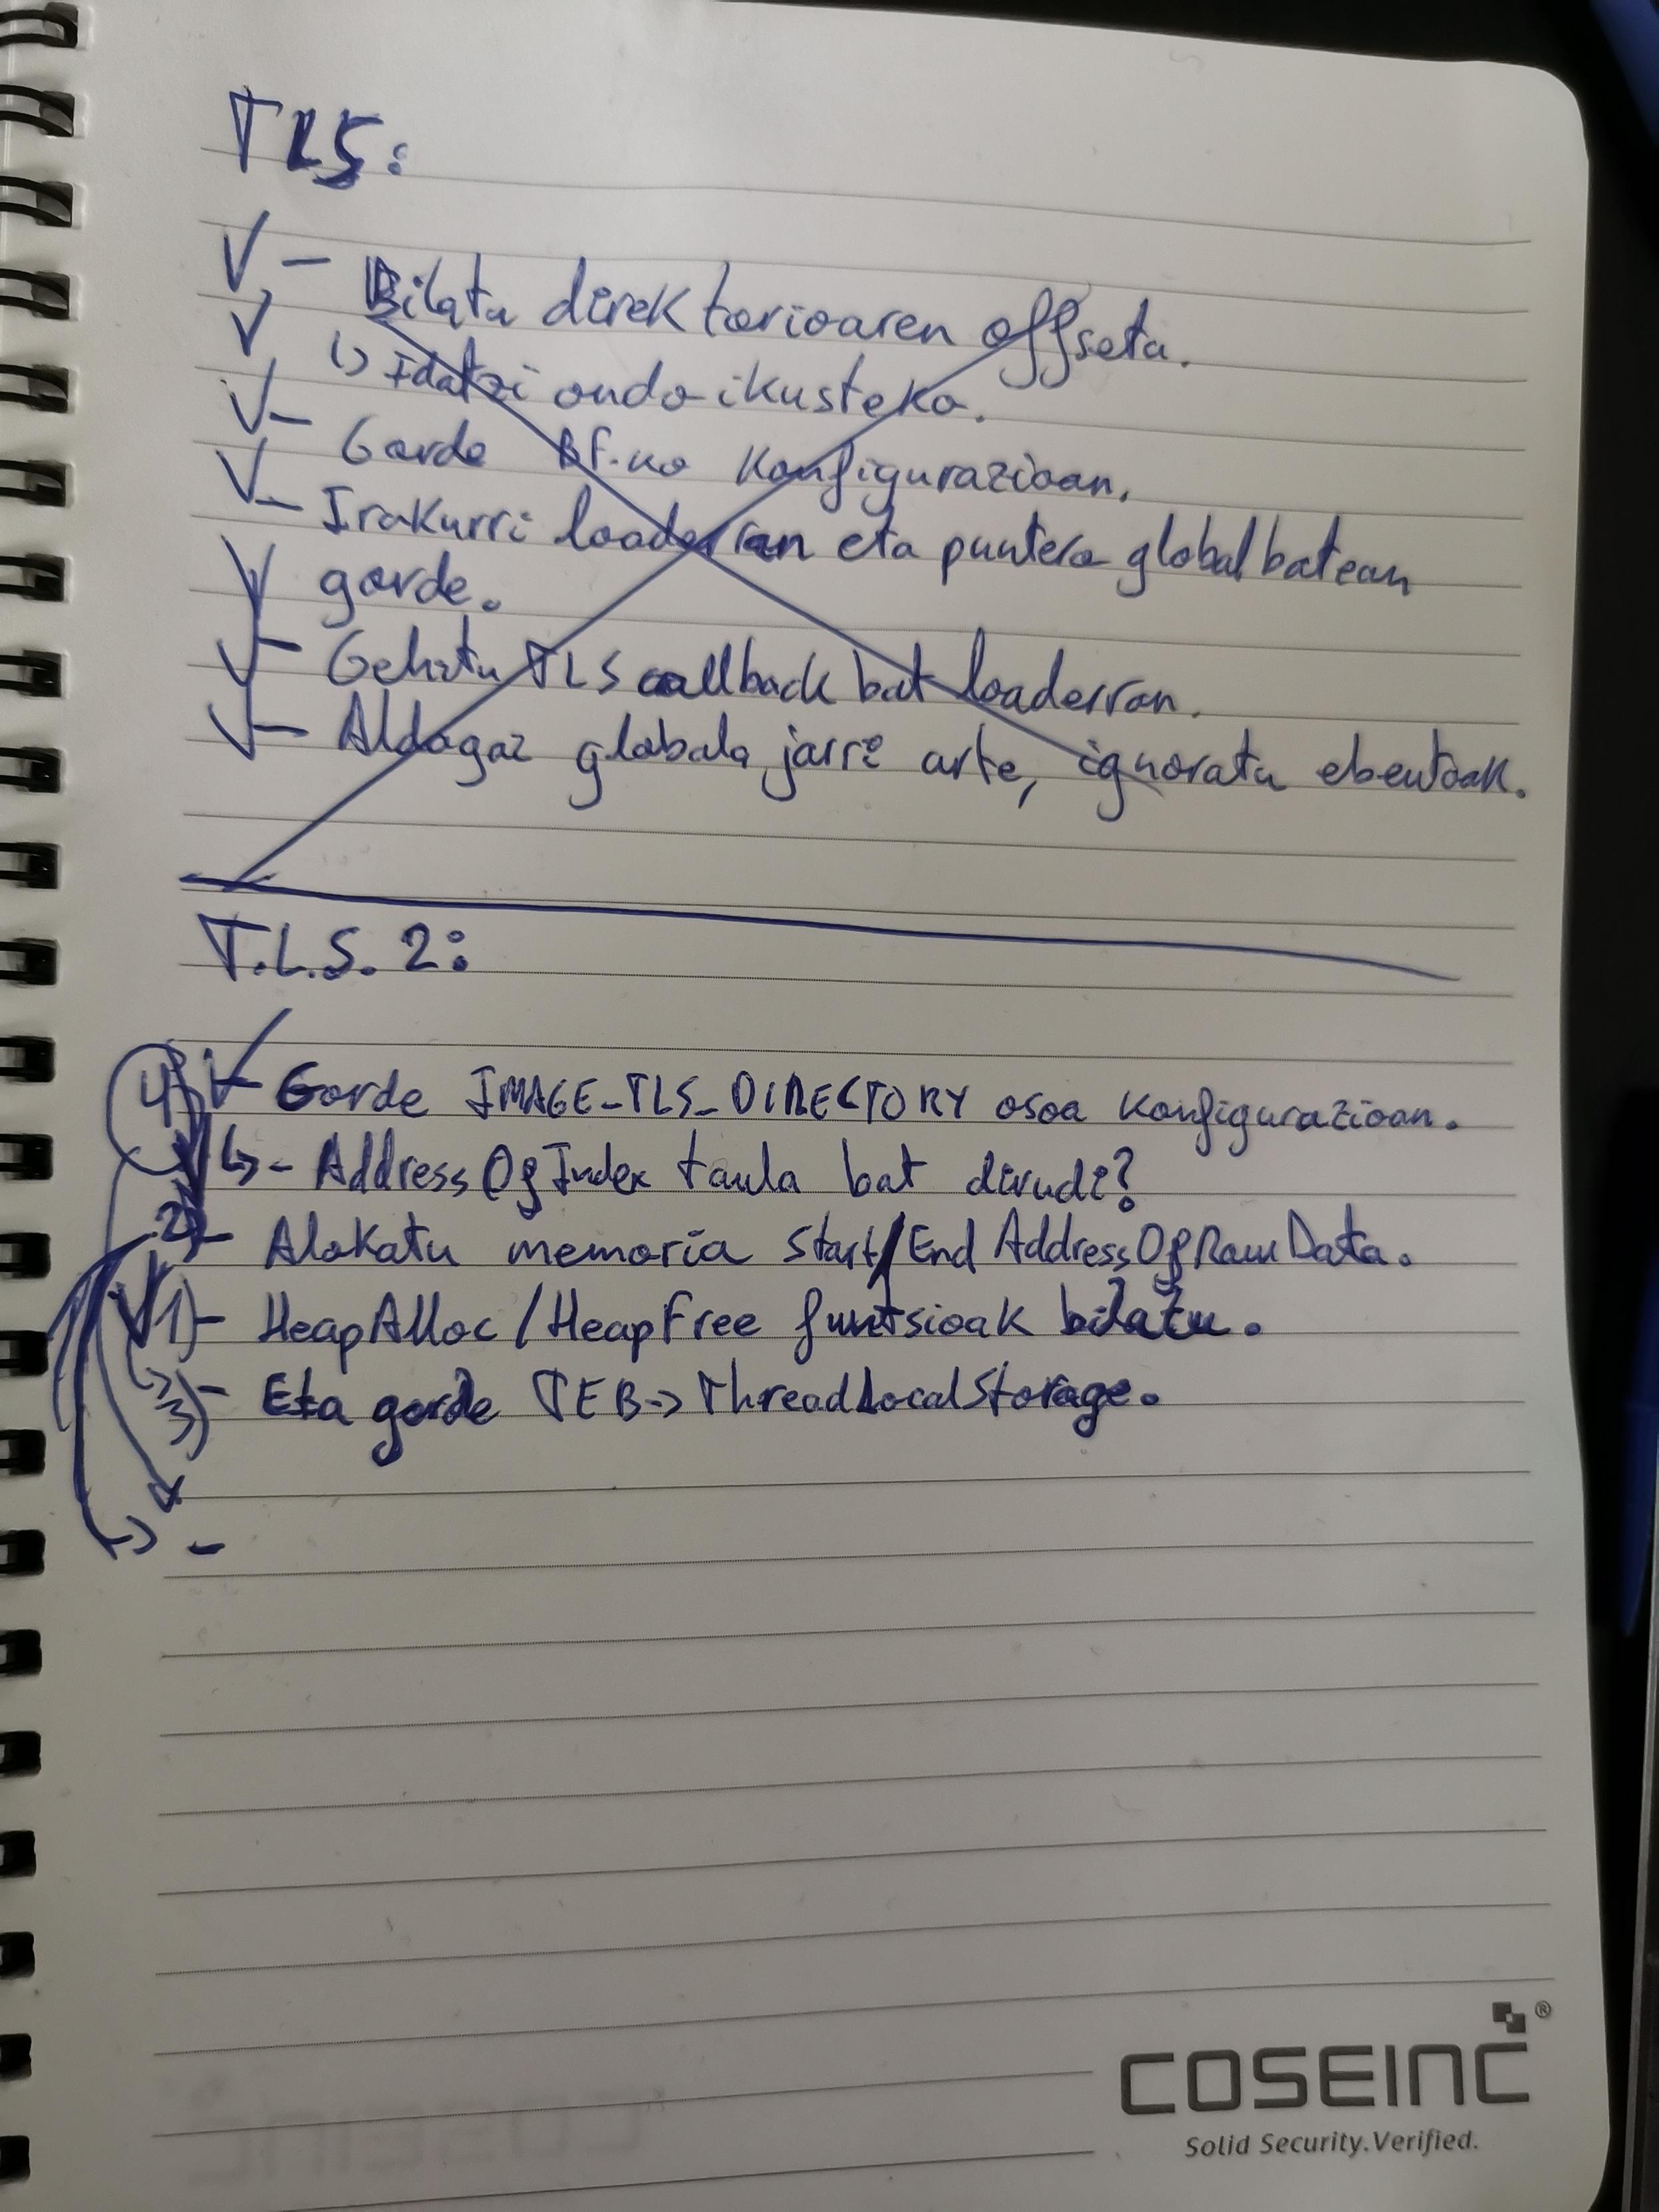 TLS:
- Bilatu direktorioaren offseta.
↳ Idatzi ondo ikusteko.
- Gorde konfigurazioan.
- Irakurri loaderran eta puntero global batean
gorde.
- Gehitu TLS callback bat loaderran.
- Aldagai globala jarri arte, ignoratu ebentoak.
T.L.S. 2:
4) - Gorde IMAGE_TLS_DIRECTORY osoa konfigurazioan.
↳ - AddressOfIndex taula bat dirudi?
2) - Alokatu memoria Start/End AddressOfRawData.
1) - HeapAlloc/HeapFree funtsioak bilatu.
3) - Eta gorde TEB->ThreadLocalStorage.
-
COSEINC®
Solid Security.Verified.